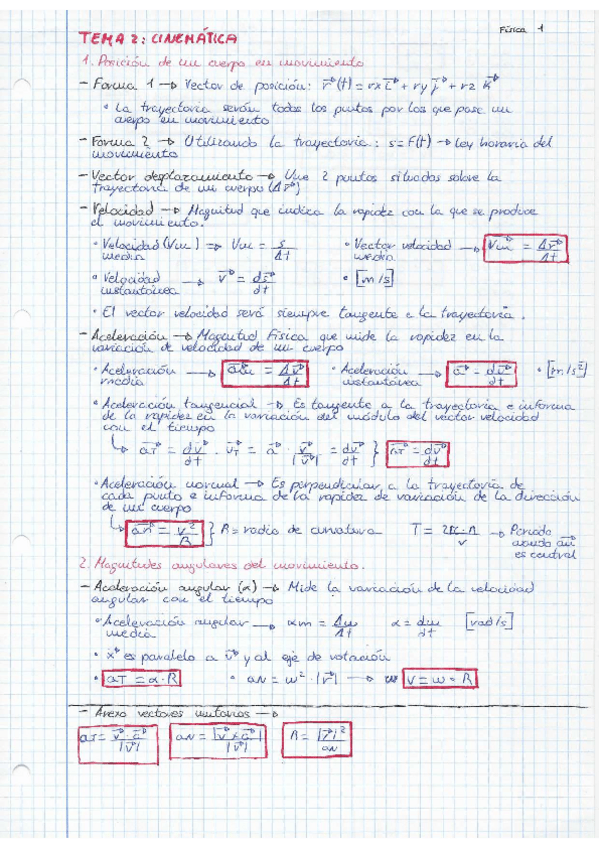 Física 1
TEMA 2: CINEMÁTICA
1. Posición de un cuerpo en movimiento
- Forma 1 → Vector de posición: r⃗(t) = rx i⃗ + ry j⃗ + rz k⃗
• La trayectoria serán todos los puntos por los que pase un
cuerpo en movimiento
- Forma 2 → Utilizando la trayectoria: s = F(t) → ley horaria del
movimiento
- Vector desplazamiento → Une 2 puntos situados sobre la
trayectoria de un cuerpo (Δr⃗)
- Velocidad → Magnitud que indica la rapidez con la que se produce
el movimiento.
• Velocidad (Vm) ⇒ Vm = s/Δt • Vector velocidad → V⃗m = Δr⃗/Δt
media media
• Velocidad → v⃗ = ds⃗/dt • [m/s]
instantánea
• El vector velocidad será siempre tangente a la trayectoria.
- Aceleración → Magnitud Física que mide la rapidez en la
variación de velocidad de un cuerpo
• Aceleración → a⃗m = Δv⃗/Δt • Aceleración → a⃗ = dv⃗/dt • [m/s²]
media instantánea
• Aceleración tangencial → Es tangente a la trayectoria e informa
de la rapidez en la variación del módulo del vector velocidad
con el tiempo
↳ a⃗T = dv⃗/dt · v⃗T = a⃗ · v⃗/|v⃗| = dv⃗/dt } a⃗T = dv⃗/dt
• Aceleración normal → Es perpendicular a la trayectoria de
cada punto e informa de la rapidez de variación de la dirección
de un cuerpo
↳ a⃗n = v²/R } R = radio de curvatura T = 2π·R/v → Periodo
cuando a⃗n
es central
2. Magnitudes angulares del movimiento.
- Aceleración angular (α) → Mide la variación de la velocidad
angular con el tiempo
• Aceleración angular → αm = Δω/Δt α = dω/dt [rad/s]
media
• α⃗ es paralelo a v⃗ y al eje de rotación
• aT = α·R • aN = ω²·|r⃗| → v = ω·R
- Anexo vectores unitarios →
aT = v⃗·a⃗/|v⃗| aN = |v⃗×a⃗|/|v⃗| R = |v⃗|²/aN